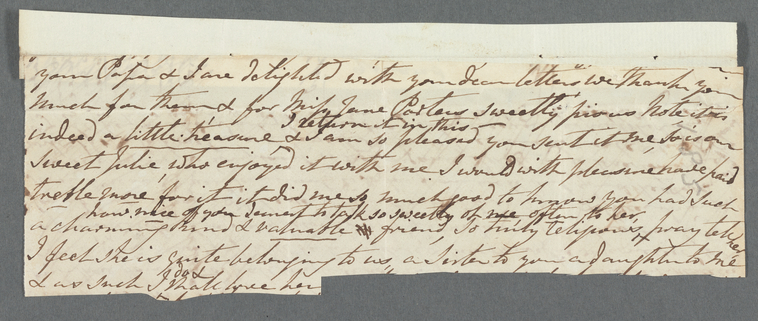 your Papa & I are delighted with your dear letters we thank you
much for them & for Miss Jane Porters sweetly pious Note it is
I return it in this
indeed a little treasure & I am so pleased you sent it me, so is our
sweet Julie, who enjoyed it with me I would with pleasure have paid
treble more for it it did me so much good to know you had such
how nice of you to talk so sweetly of me often to her,
a charming kind & valuable friend, so truly religious, pray tell her
I feel she is quite belonging to us, a Sister to you a daughter to me
do &
& as such I shall love her